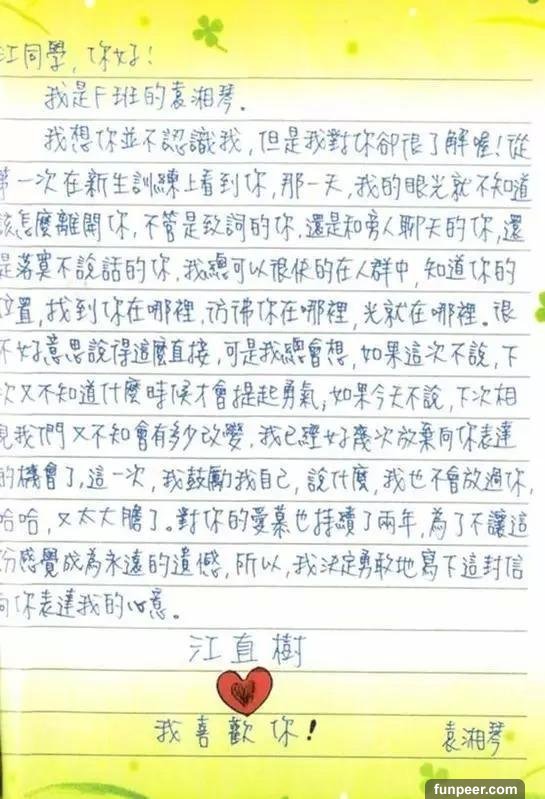 江同學,你好!
我是F班的袁湘琴。
我想你並不認識我,但是我對你卻很了解喔!從
第一次在新生訓練上看到你,那一天,我的眼光就不知道
該怎麼離開你,不管是致詞的你,還是和旁人聊天的你,還
是落寞不說話的你,我總可以很快的在人群中,知道你的
位置,找到你在哪裡,彷彿你在哪裡,光就在哪裡。很
不好意思說得這麼直接,可是我總會想,如果這次不說,下
次又不知道什麼時候才會提起勇氣;如果今天不說,下次相
見我們又不知會有多少改變,我已經好幾次放棄向你表達
的機會了,這一次,我鼓勵我自己,說什麼,我也不會放過你,
哈哈,又太大膽了。對你的愛慕也持續了兩年,為了不讓這
份感覺成為永遠的遺憾,所以,我決定勇敢地寫下這封信
向你表達我的心意。
江直樹
我喜歡你!
袁湘琴
funpeer.com